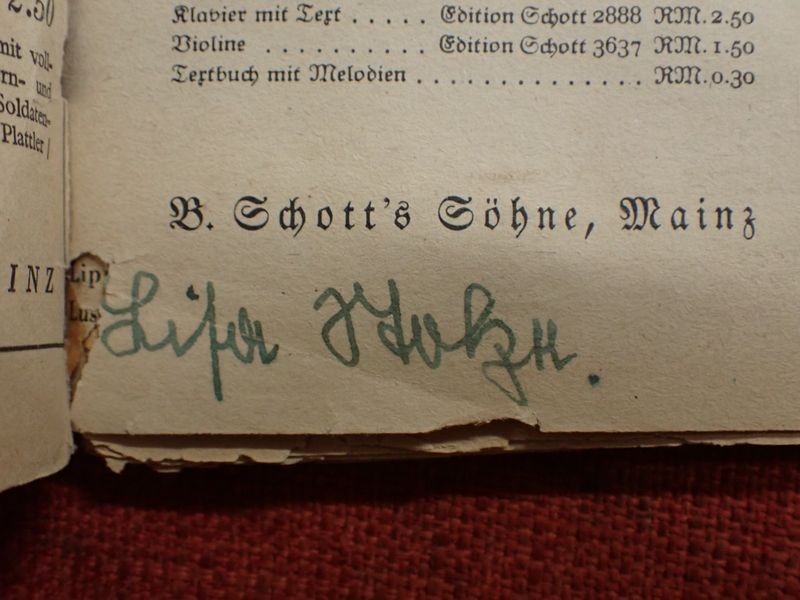 2.50
mit voll-
rn- und
Soldaten-
Plattler /
INZ
Klavier mit Text ..... Edition Schott 2888 RM. 2.50
Violine .......... Edition Schott 3637 RM. 1.50
Textbuch mit Melodien .............. RM. 0.30
B. Schott's Söhne, Mainz
Lip
Lus
Lisa